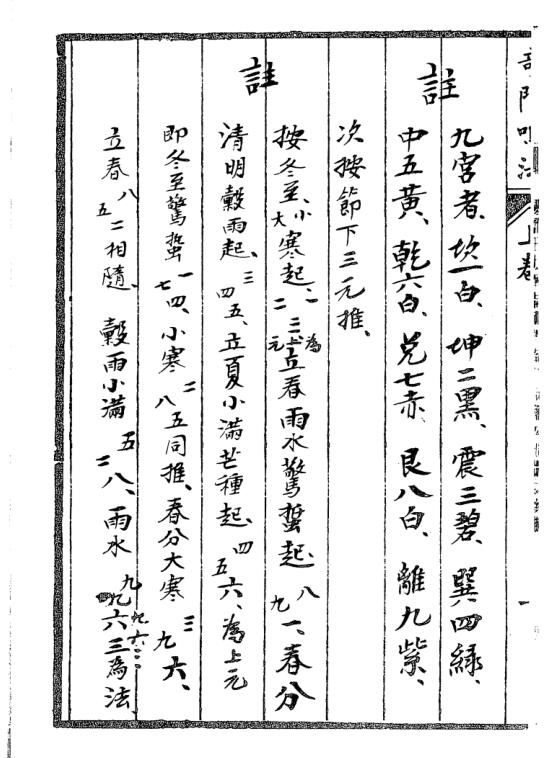 奇門吗法 上卷
註 九宮者、坎一白、坤二黑、震三碧、巽四綠、
中五黃、乾六白、兌七赤、艮八白、離九紫、
次按節下三元推、
註 按冬至、小大寒起、一二三為上元 立春雨水驚蟄起、八九一、春分
清明穀雨起、三四五、立夏小滿芒種起、四五六、為上元
即冬至驚蟄一七四、小寒二八五同推、春分大寒三九六、
立春八五二相隨、穀雨小滿五二八、雨水九六三為法、